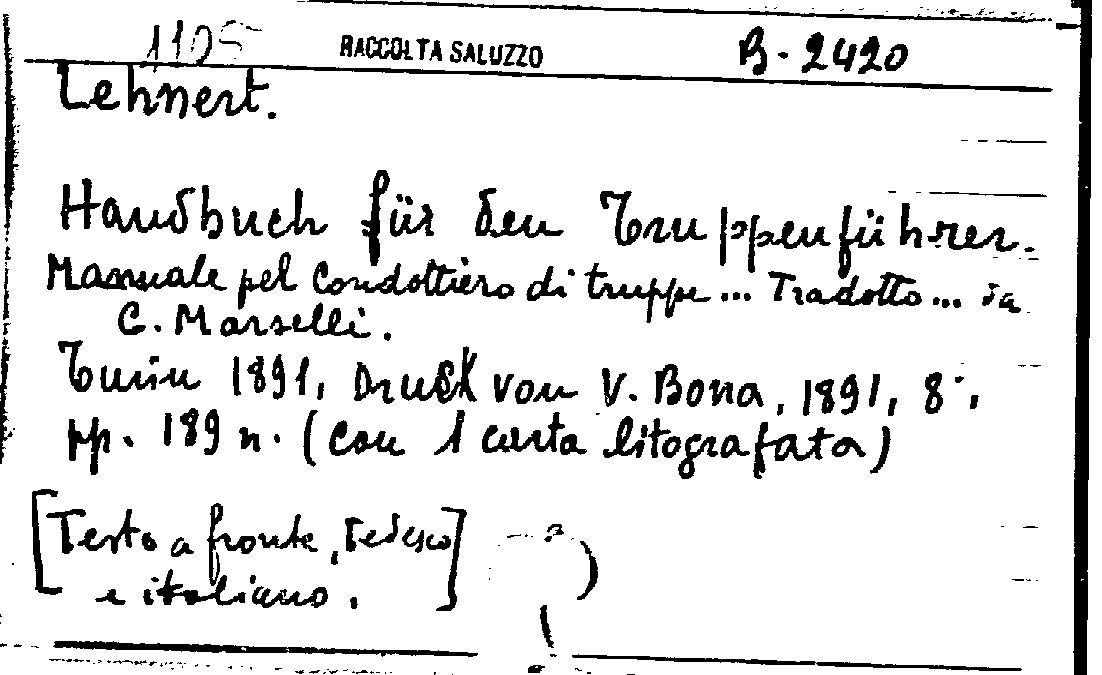 1105 RACCOLTA SALUZZO B. 2420
Lehnert.
Handbuch für den Truppenführer.
Manuale pel Condottiero di truppe... Tradotto... da
C. Marselli.
Turin 1891, Druck von V. Bona, 1891, 8°,
pp. 189 n. (con 1 carta litografata)
[Testo a fronte, tedesco
e italiano.]